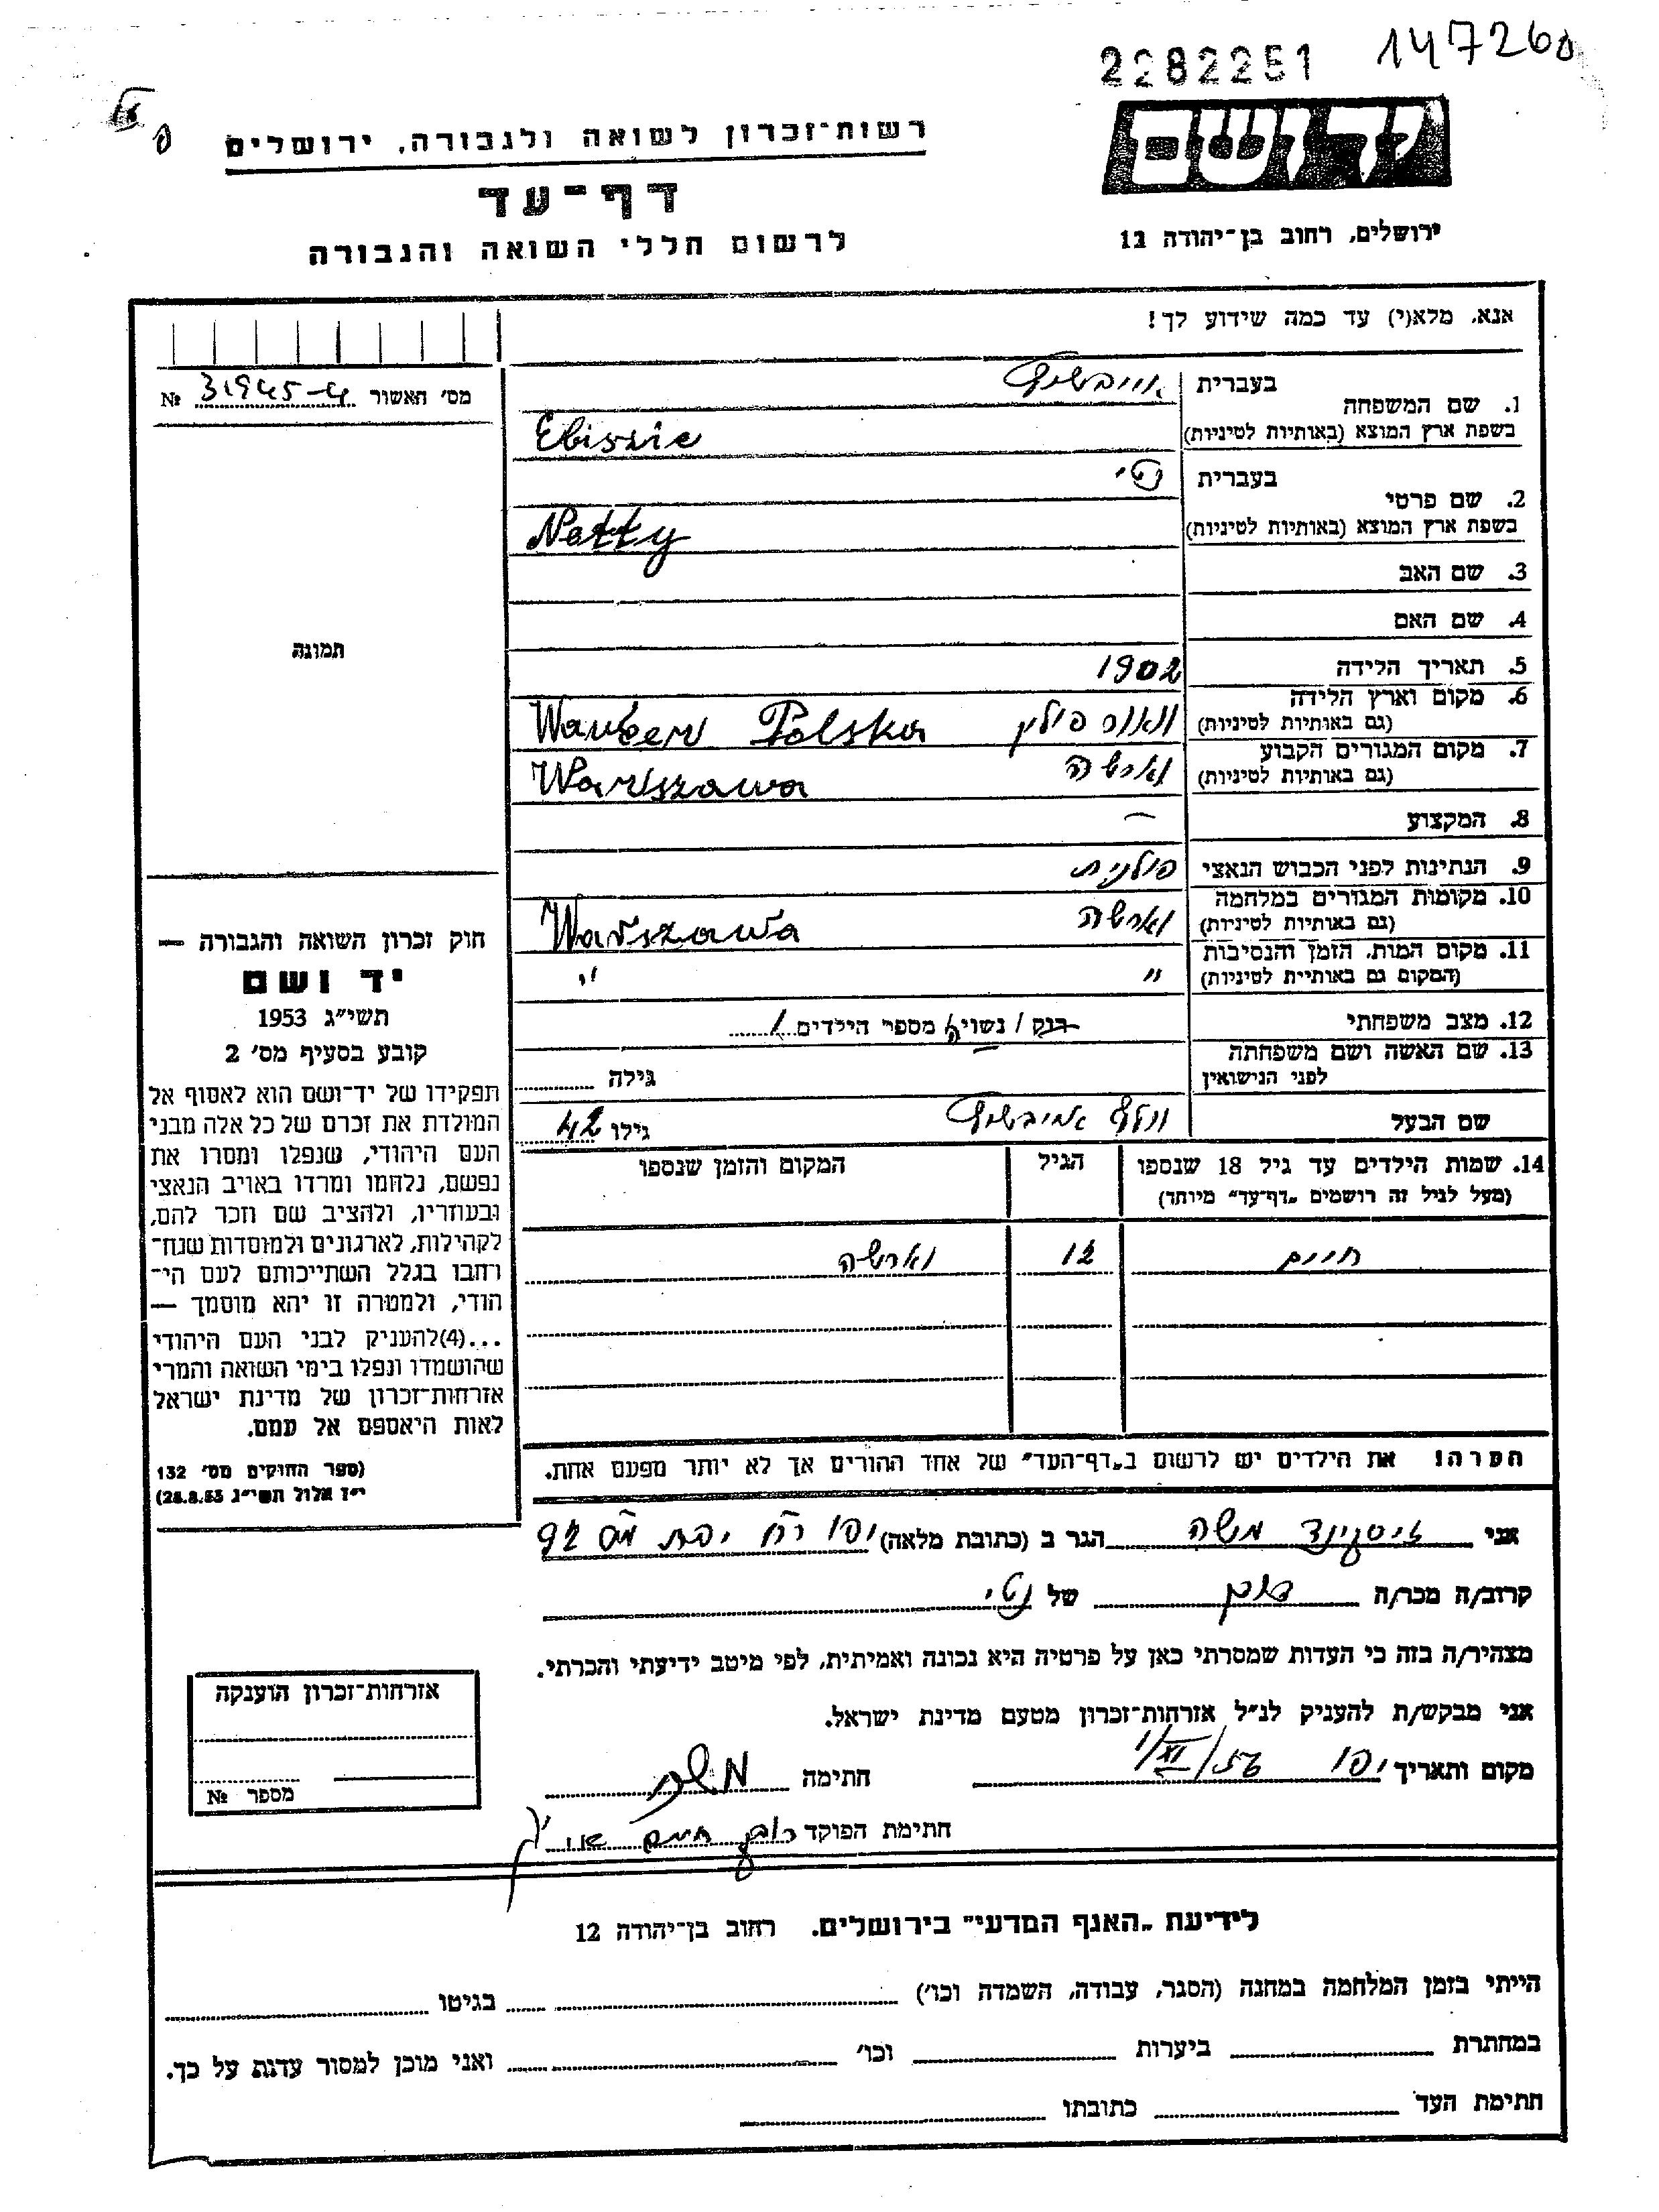 2282251 147260
רשות־זכרון לשואה ולגבורה, ירושלים
ידושם
דף־עד
לרשום חללי השואה והגבורה
ירושלים, רחוב בן־יהודה 12
אנא, מלא(י) עד כמה שידוע לך!
מס׳ האשור 31945-4 №
1. שם המשפחה
בעברית
בשפת ארץ המוצא (באותיות לטיניות)
Ebiszic
2. שם פרטי
בעברית נטי
בשפת ארץ המוצא (באותיות לטיניות)
Netty
3. שם האב
4. שם האם
תמונה
5. תאריך הלידה 1902
6. מקום וארץ הלידה
(גם באותיות לטיניות) פולין Polska
7. מקום המגורים הקבוע
(גם באותיות לטיניות) וארשה Warszawa
8. המקצוע –
9. הנתינות לפני הכבוש הנאצי פולנית
10. מקומות המגורים במלחמה
(גם באותיות לטיניות) וארשה Warszawa
11. מקום המות, הזמן והנסיבות
(המקום גם באותיית לטיניות) " "
12. מצב משפחתי רוק / נשוי/ה מספר הילדים 1
13. שם האשה ושם משפחתה
לפני הנישואין גילה
שם הבעל וולף אייבשיץ גילו 42
14. שמות הילדים עד גיל 18 שנספו
(מעל לגיל זה רושמים „דף־עד" מיוחד)
הגיל
המקום והזמן שנספו
חיים 12 וארשה
הערה! את הילדים יש לרשום ב„דף־העד" של אחד ההורים אך לא יותר מפעם אחת.
חוק זכרון השואה והגבורה —
יד ושם
תשי״ג 1953
קובע בסעיף מס׳ 2
תפקידו של יד־ושם הוא לאסוף אל
המולדת את זכרם של כל אלה מבני
העם היהודי, שנפלו ומסרו את
נפשם, נלחמו ומרדו באויב הנאצי
ובעוזריו, ולהציב שם וזכר להם,
לקהילות, לארגונים ולמוסדות שנח־
רבו בגלל השתייכותם לעם הי־
הודי, ולמטרה זו יהא מוסמך —
...(4)להעניק לבני העם היהודי
שהושמדו ונפלו בימי השואה והמרי
אזרחות־זכרון של מדינת ישראל
לאות היאספם אל עמם.
(ספר החוקים מס׳ 132
י״ז אלול תשי״ג 28.8.53)
אני זיסקינד משה הגר ב (כתובת מלאה) יפו רח יפת מס 92
קרוב/ה מכר/ה של נטי
מצהיר/ה בזה כי העדות שמסרתי כאן על פרטיה היא נכונה ואמיתית, לפי מיטב ידיעתי והכרתי.
אני מבקש/ת להעניק לנ״ל אזרחות־זכרון מטעם מדינת ישראל.
מקום ותאריך יפו 1/XI/56 חתימה משה
חתימת הפוקד
אזרחות־זכרון הוענקה
מספר №
לידיעת „האגף המדעי" בירושלים. רחוב בן־יהודה 12
הייתי בזמן המלחמה במחנה (הסגר, עבודה, השמדה וכו׳) בגיטו
במחתרת ביערות וכו׳ ואני מוכן למסור עדות על כך.
חתימת העד כתובתו